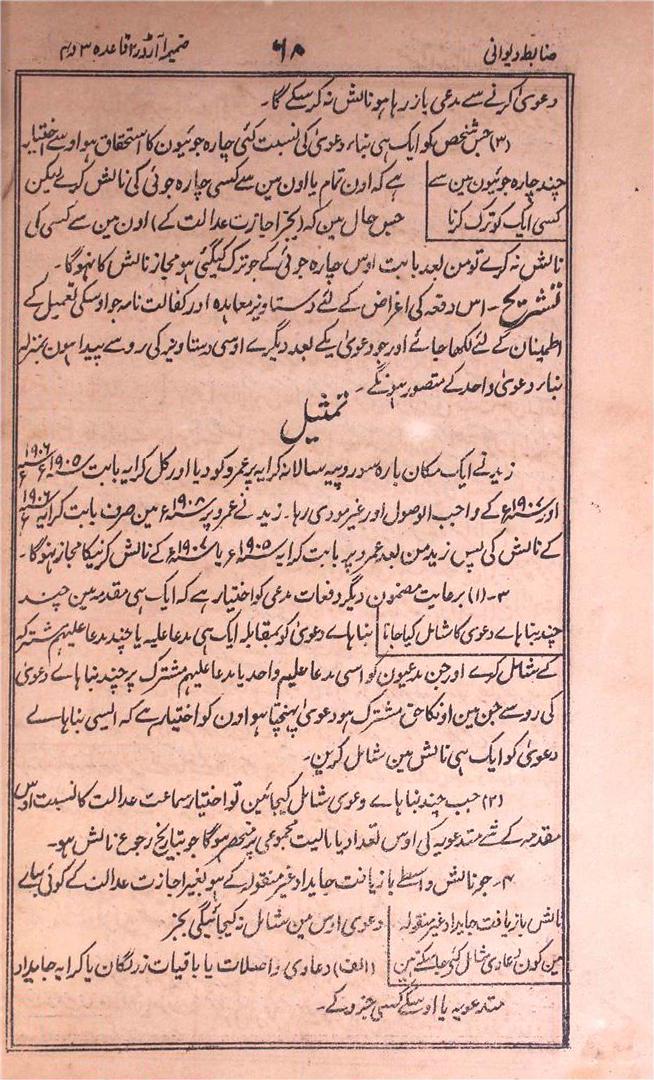 ضابطہ دیوانی ۶۸ ضمیمہ آرڈر ۲ قاعدہ ۳ و ۴
دعویٰ کرنے سے مدعی باز رہا ہو نالش نہ کر سکے گا۔
(۳) جس شخص کو ایک ہی بناء دعویٰ کی نسبت کئی چارہ جوئیون کا استحقاق ہو اوسے اختیار
چند چارہ جوئیون مین سے
کسی ایک کو ترک کرنا
ہے کہ اون تمام یا اون مین سے کسی چارہ جوئی کی نالش کرے لیکن
جس حال مین کہ (بجز اجازت عدالت کے) اون مین سے کسی کی
نالش نہ کرے تو من بعد بابت اوس چارہ جوئی کے جو ترک کیگئی ہو مجاز نالش کا نہوگا۔
تشریح۔ اس دفعہ کی اغراض کے لئے دستاویز معاہدہ اور کفالت نامہ جو اوسکی تعمیل کے
اطمینان کے لئے لکھا جائے اور جو دعویٰ یکے بعد دیگرے اوسی دستاویز کی رو سے پیدا ہون بمنزلہ
بناء دعویٰ واحد کے متصور ہونگے۔
تمثیل
زید نے ایک مکان بارہ سو روپیہ سالانہ کرایہ پر عمرو کو دیا اور کل کرایہ بابت سنہ ۱۹۰۵ء سنہ ۱۹۰۶ء
اور سنہ ۱۹۰۷ء کے واجب الوصول اور غیر مودی رہا۔ زید نے عمرو پر سنہ ۱۹۰۸ء مین صرف بابت کرایہ سنہ ۱۹۰۶ء
کے نالش کی پس زید من بعد عمرو پر بابت کرایہ سنہ ۱۹۰۵ء یا سنہ ۱۹۰۷ء کے نالش کرنیکا مجاز نہوگا۔
۳۔ (۱) برعایت مضمون دیگر دفعات مدعی کو اختیار ہے کہ ایک ہی مقدمہ مین چند
چند بناہاے دعوی کا شامل کیا جانا
بناہاے دعویٰ کو بمقابلہ ایک ہی مدعا علیہ یا چند مدعا علیہم مشترکہ
کے شامل کرے اور جن مدعیون کو اسی مدعا علیہم واحد یا مدعا علیہم مشترک پر چند بناہاے دعویٰ
کی رو سے جن مین اونکا حق مشترک ہو دعویٰ پہنچتا ہو اون کو اختیار ہے کہ ایسی بناہاے
دعویٰ کو ایک ہی نالش مین شامل کرین۔
(۲) جب چند بناہاے دعوی شامل کیجائین تو اختیار سماعت عدالت کا نسبت اوس
مقدمہ کے شے متدعویہ کی اوس تعداد یا مالیت مجموعی پر منحصر ہوگا جو بتاریخ رجوع نالش ہو۔
۴۔ جو نالش واسطے بازیافت جایداد غیر منقولہ کے ہو بغیر اجازت عدالت کے کوئی بناے
نالش بازیافت جایداد غیر منقولہ
مین کون دعاوی شامل کئے جاسکتے ہین
دعوی اوس مین شامل نہ کیجائیگی بجز
(الف) دعاوی واصلات یا باقیات زر لگان یا کرایہ جایداد
متدعویہ یا اوسکے کسی جزو کے۔